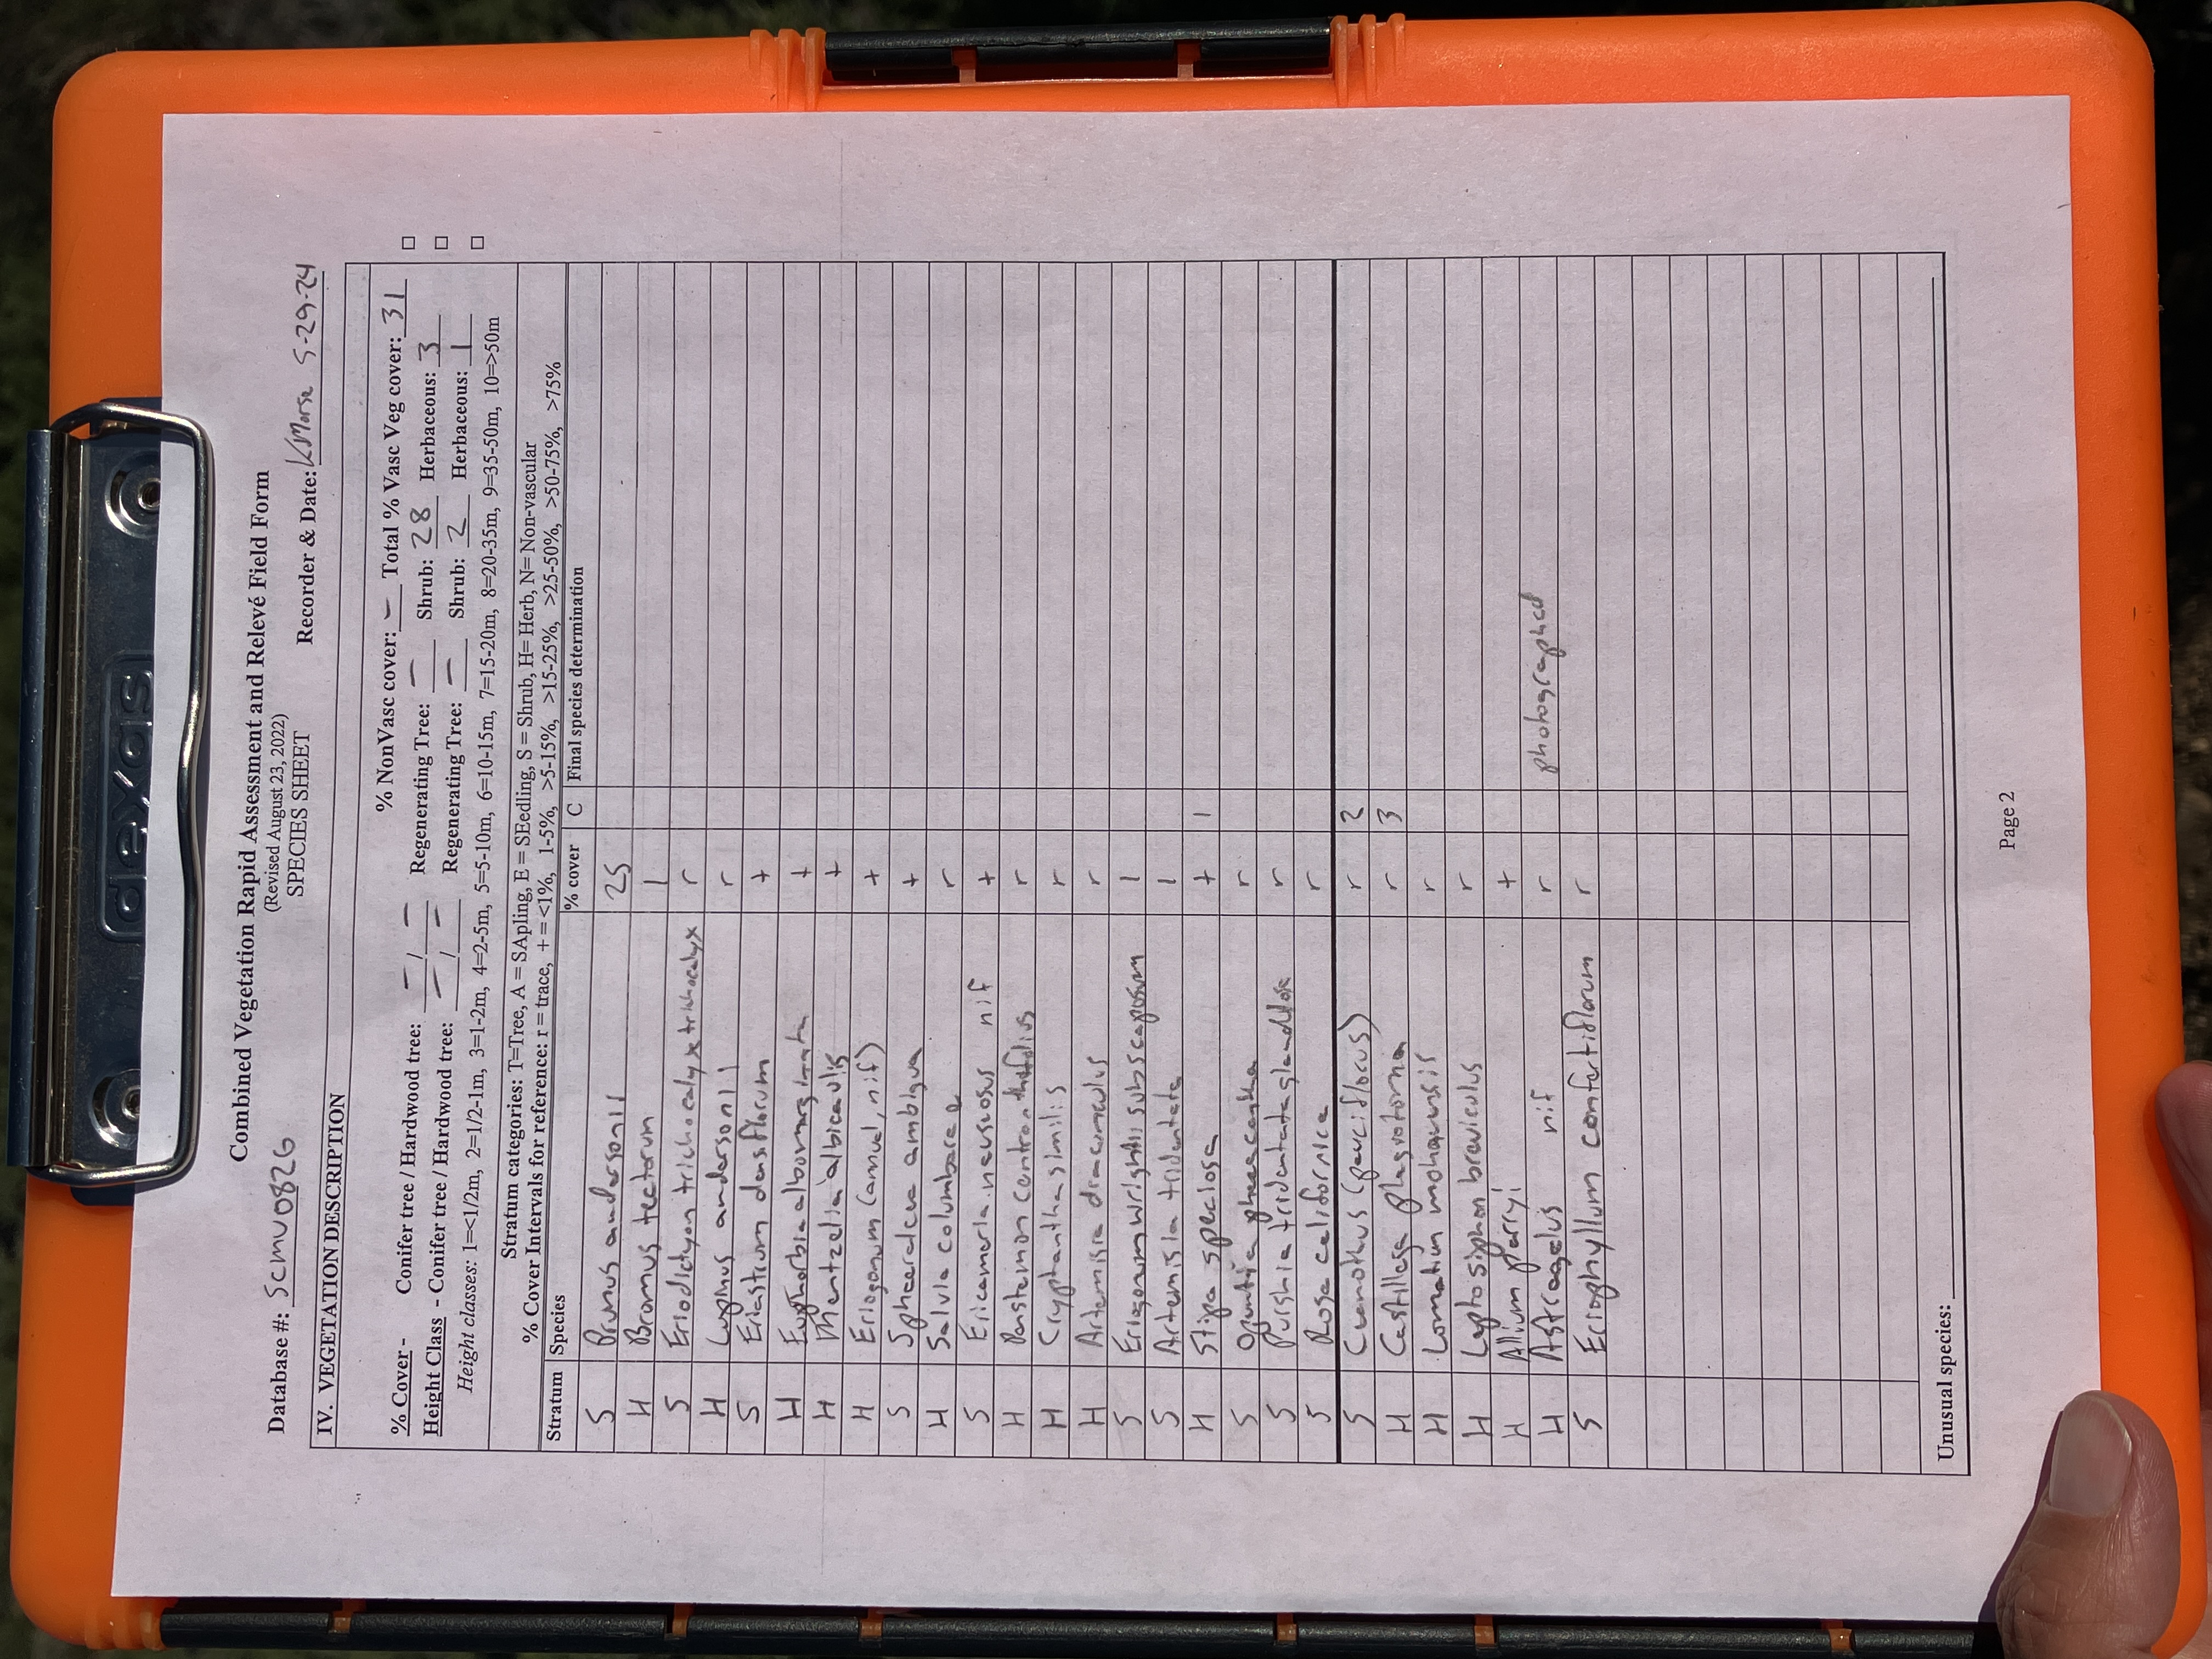 dexas
Combined Vegetation Rapid Assessment and Relevé Field Form
(Revised August 23, 2022)
SPECIES SHEET
Database #: SCMV0826 Recorder & Date: KMorse 5-29-24
IV. VEGETATION DESCRIPTION
% NonVasc cover: - Total % Vasc Veg cover: 31 □
% Cover - Conifer tree / Hardwood tree: - / - Regenerating Tree: - Shrub: 28 Herbaceous: 3 □
Height Class - Conifer tree / Hardwood tree: - / - Regenerating Tree: - Shrub: 2 Herbaceous: 1 □
Height classes: 1=<1/2m, 2=1/2-1m, 3=1-2m, 4=2-5m, 5=5-10m, 6=10-15m, 7=15-20m, 8=20-35m, 9=35-50m, 10=>50m
Stratum categories: T=Tree, A = SApling, E = SEedling, S = Shrub, H= Herb, N= Non-vascular
% Cover Intervals for reference: r = trace, + = <1%, 1-5%, >5-15%, >15-25%, >25-50%, >50-75%, >75%
Stratum Species % cover C Final species determination
S Prunus andersonii 25
H Bromus tectorum 1
S Eriodictyon trichocalyx trichocalyx r
H Lupinus andersonii r
S Eriastrum densiflorum +
H Euphorbia albomarginata +
H Mentzelia albicaulis +
H Eriogonum (annual, nif) +
S Sphaeralcea ambigua +
H Salvia columbarae r
S Ericameria nauseosus nif +
H Penstemon centranthifolius r
H Cryptantha similis r
H Artemisia dracunculus r
S Eriogonum wrightii subscaposum 1
S Artemisia tridentata 1
H Stipa speciosa + 1
S Opuntia phaeacantha r
S Purshia tridentata glandulosa r
S Rosa californica r
S Ceanothus (pauciflorus) r 2
H Castilleja plagiotoma r 3
H Lomatium mohavensis r
H Leptosiphon breviculus r
H Allium parryi +
H Astragalus nif r photographed
S Eriophyllum confertiflorum r
Unusual species:
Page 2